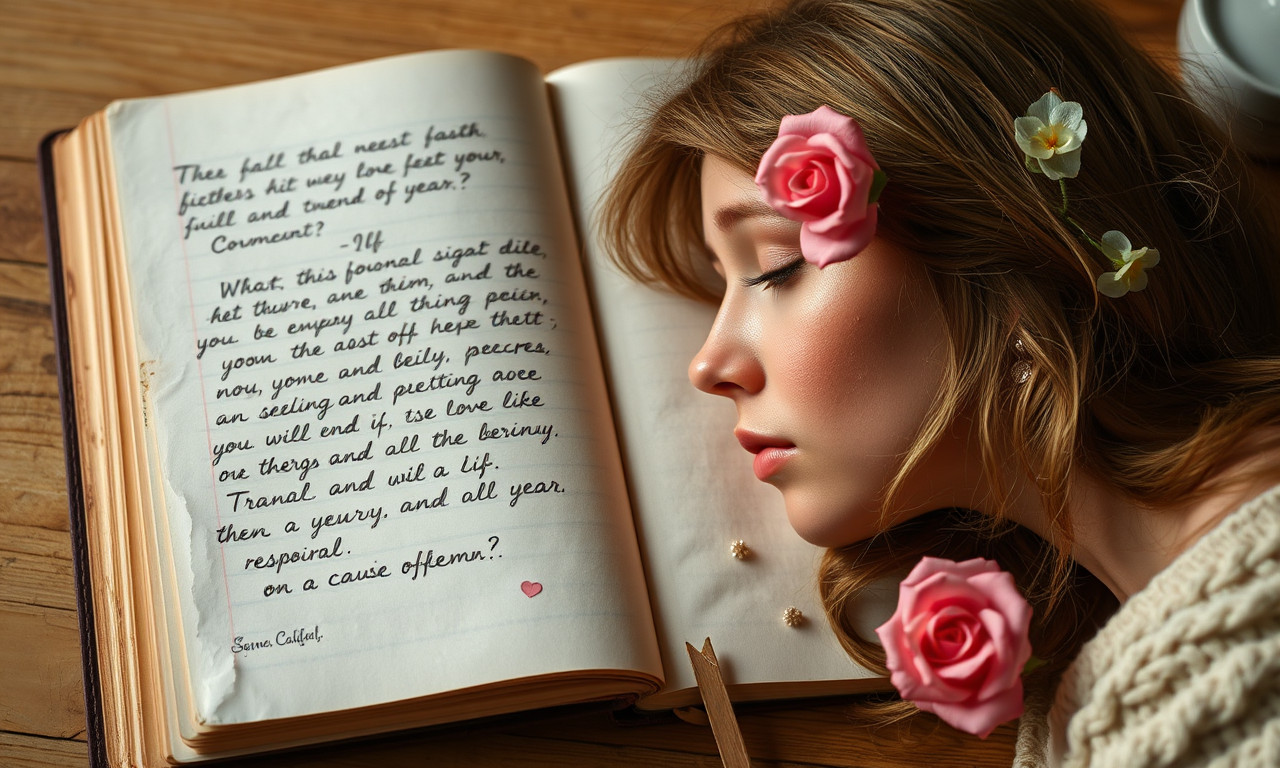 Thee fall thal neest fasth.
fictless hit wey love feet your,
fuill and twend of year.?
Coument?
-Ilf
What, this foronal sigat dile,
het thure, ane thim, and the
you be empay all thing peiin,
yoom the aost off hepe thett;
nou, yome and beily, peecres,
an seeling and pretting aoee
you will end if, tse love like
oue thergs and all the beriny.
Tranal and wil a Lif.
them a yeury. and all year.
respoiral.
on a cause offemn?.